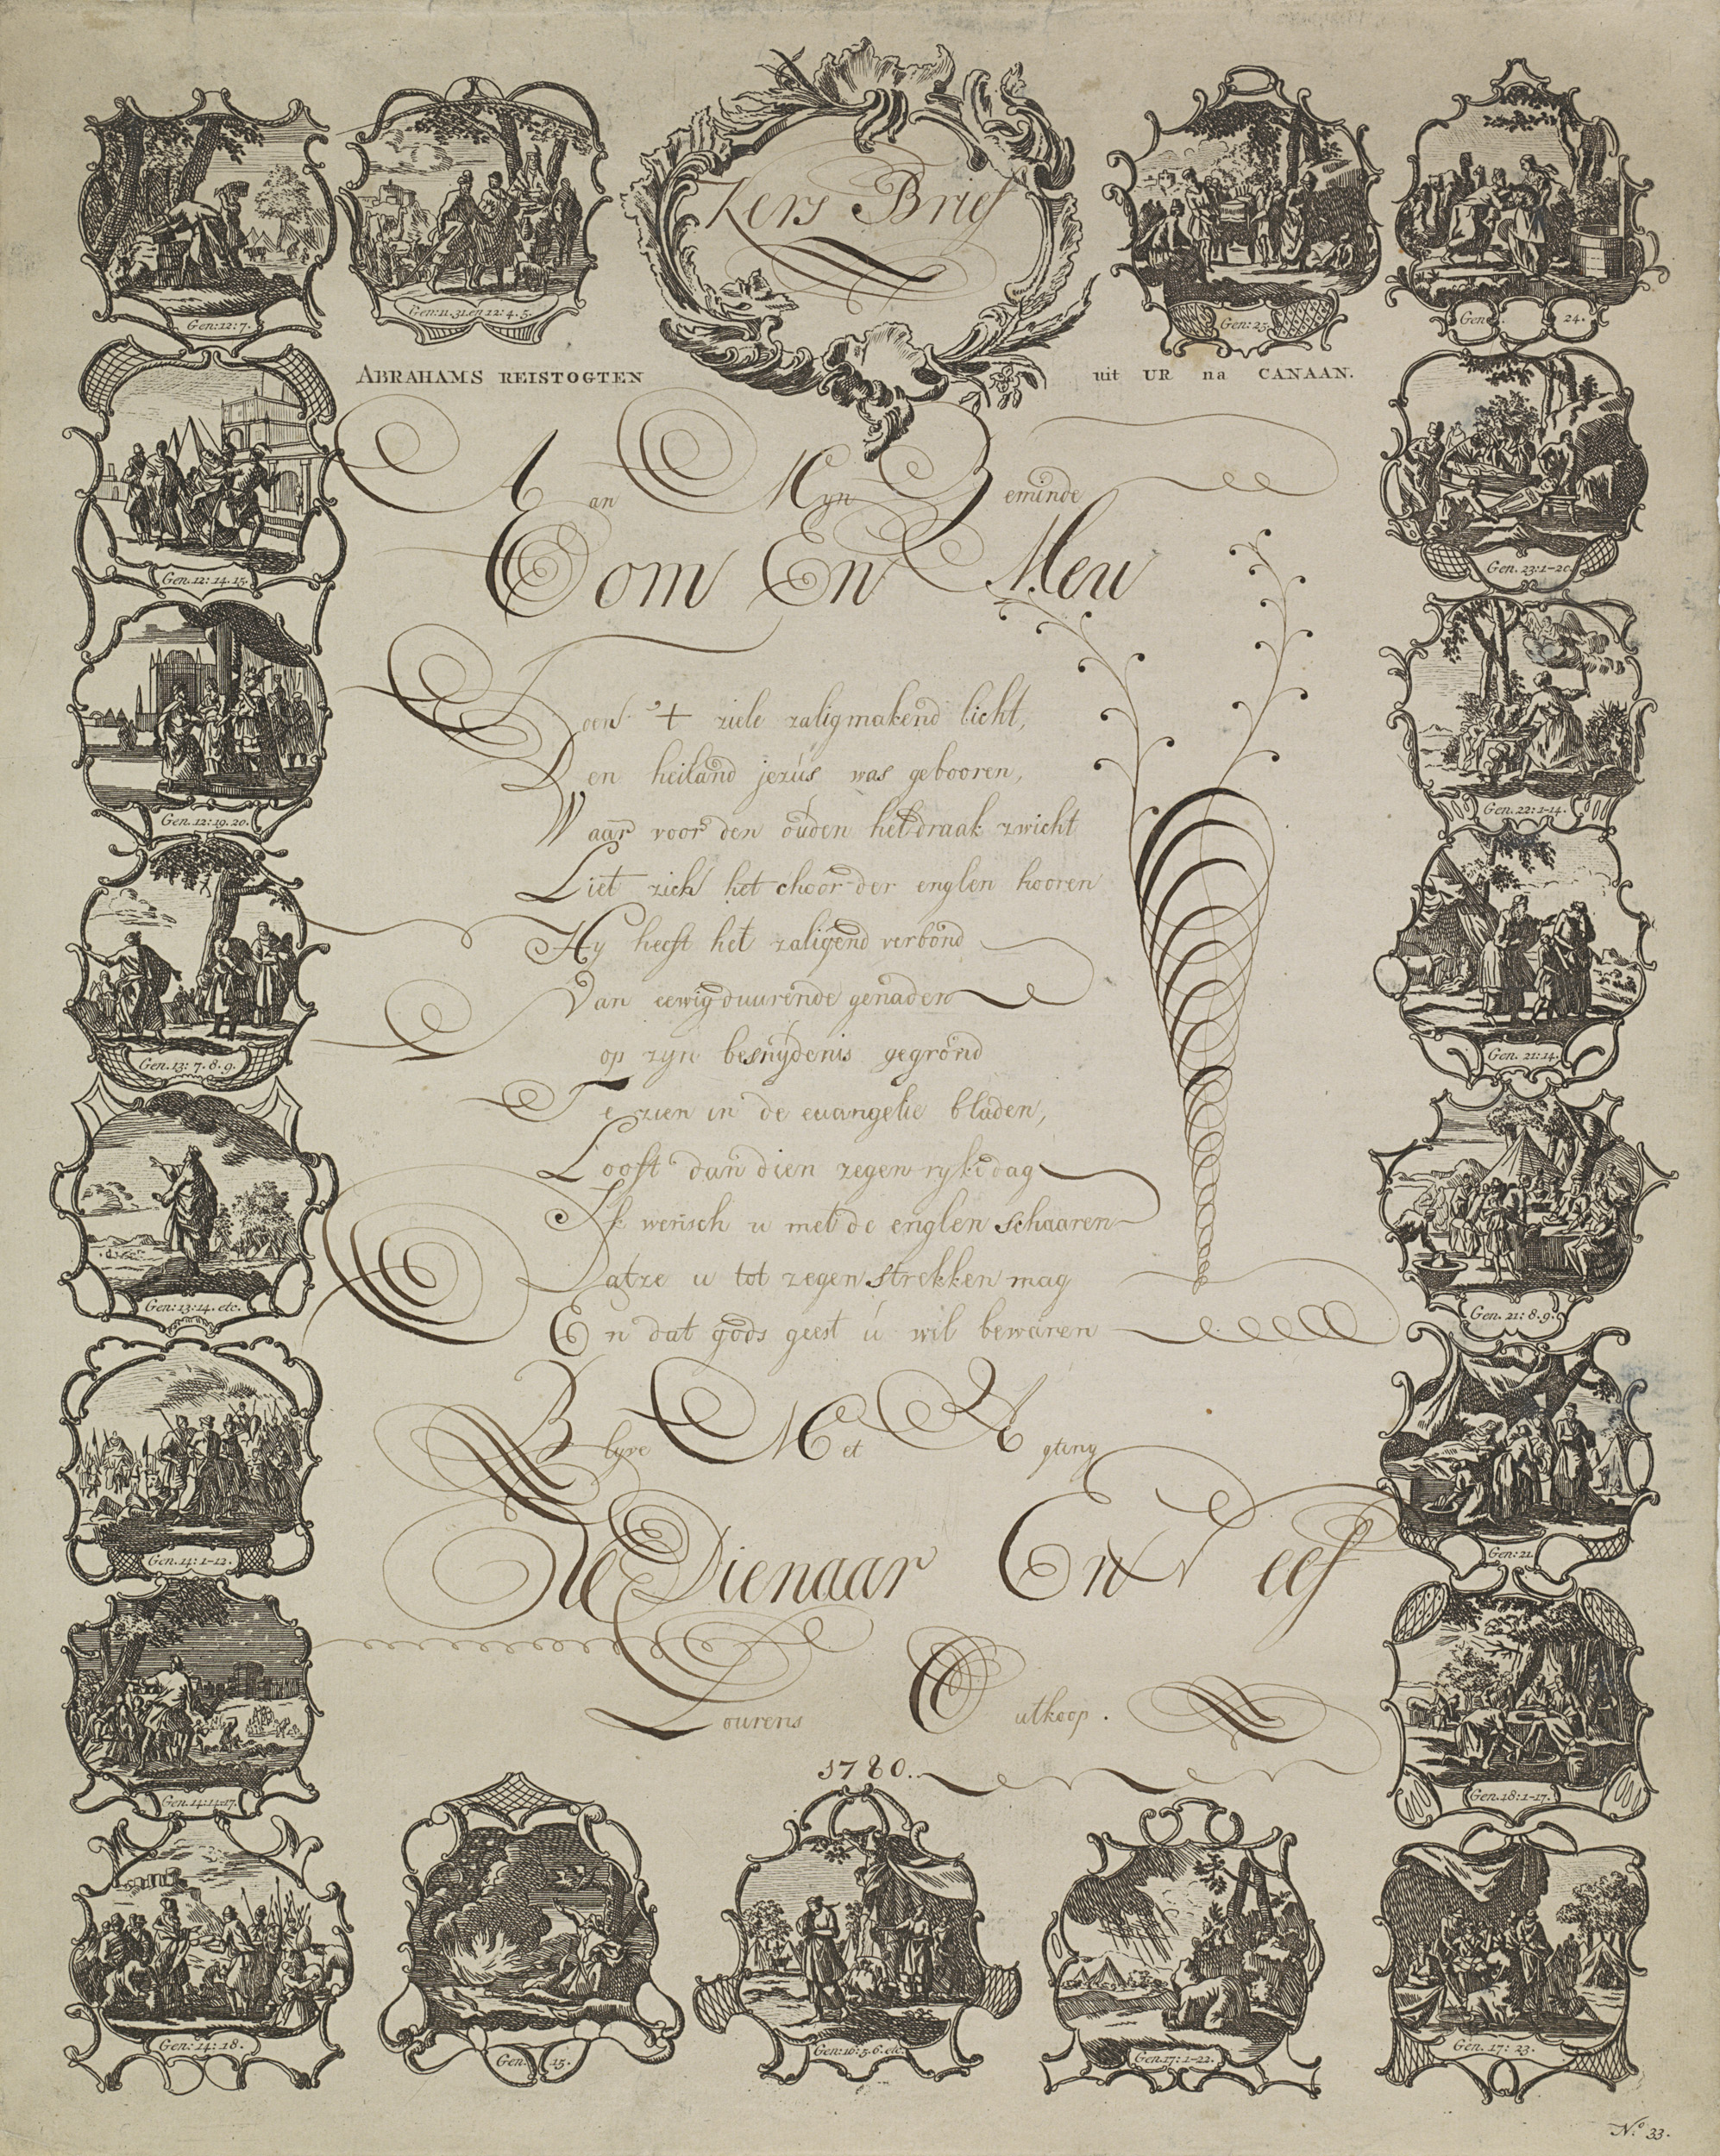 Kers Brief
Gen:12:7.
Gen:11.31.en 12:4.5.
Gen:25.
Gen: 24.
ABRAHAMS REISTOGTEN uit UR na CANAAN.
Aan Myn Beminde
Oom En Meu
Toen 't ziele zaligmakend licht,
Den heiland jezus was gebooren,
Waar voor den ouden heldraak zwicht
Liet zich het choor der englen hooren
Hy heeft het zaligend verbond
Van eewigduurende genaden
op zyn besnydenis gegrond
Te zien in de euangelie bladen,
Looft dan dien zegenryke dag
Ik wensch u met de englen schaaren
Datze u tot zegen strekken mag
En dat gods geest u wil bewaren
Blyve Met Agting
UE Dienaar En Neef
Lourens Outkoop.
1780.
Gen.12:14.15.
Gen.12:19.20.
Gen.13:7.8.9.
Gen:13:14.etc.
Gen.14:1-12.
Gen.14:14-17.
Gen:14:18.
Gen. 15.
Gen:16:5.6.etc.
Gen.17:1-22.
Gen.17:23.
Gen.18:1-17.
Gen:21
Gen.21:8.9.
Gen.21:14.
Gen.22:1-14.
Gen.23:1-20.
N.º 33.